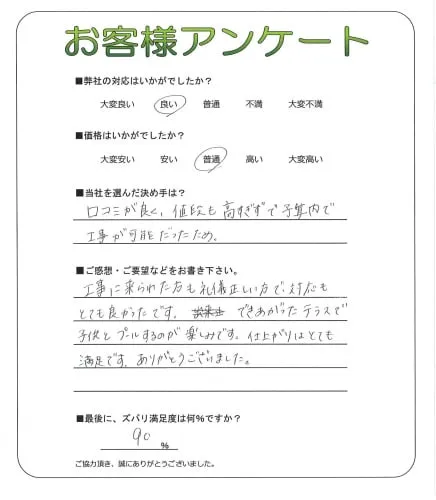 お客様アンケート
■弊社の対応はいかがでしたか？
大変良い 良い 普通 不満 大変不満
■価格はいかがでしたか？
大変安い 安い 普通 高い 大変高い
■当社を選んだ決め手は？
口コミが良く、値段も高すぎずで予算内で
工事が可能だったため。
■ご感想・ご要望などをお書き下さい。
工事に来られた方も礼儀正しい方で、対応も
とても良かったです。 できあがったテラスで
子供とプールするのが楽しみです。仕上がりはとても
満足です。ありがとうございました。
■最後に、ズバリ満足度は何%ですか？
90 %
ご協力頂き、誠にありがとうございました。